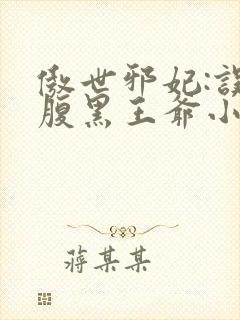 傲世邪妃:误
腹黑王爷小
蒋某某